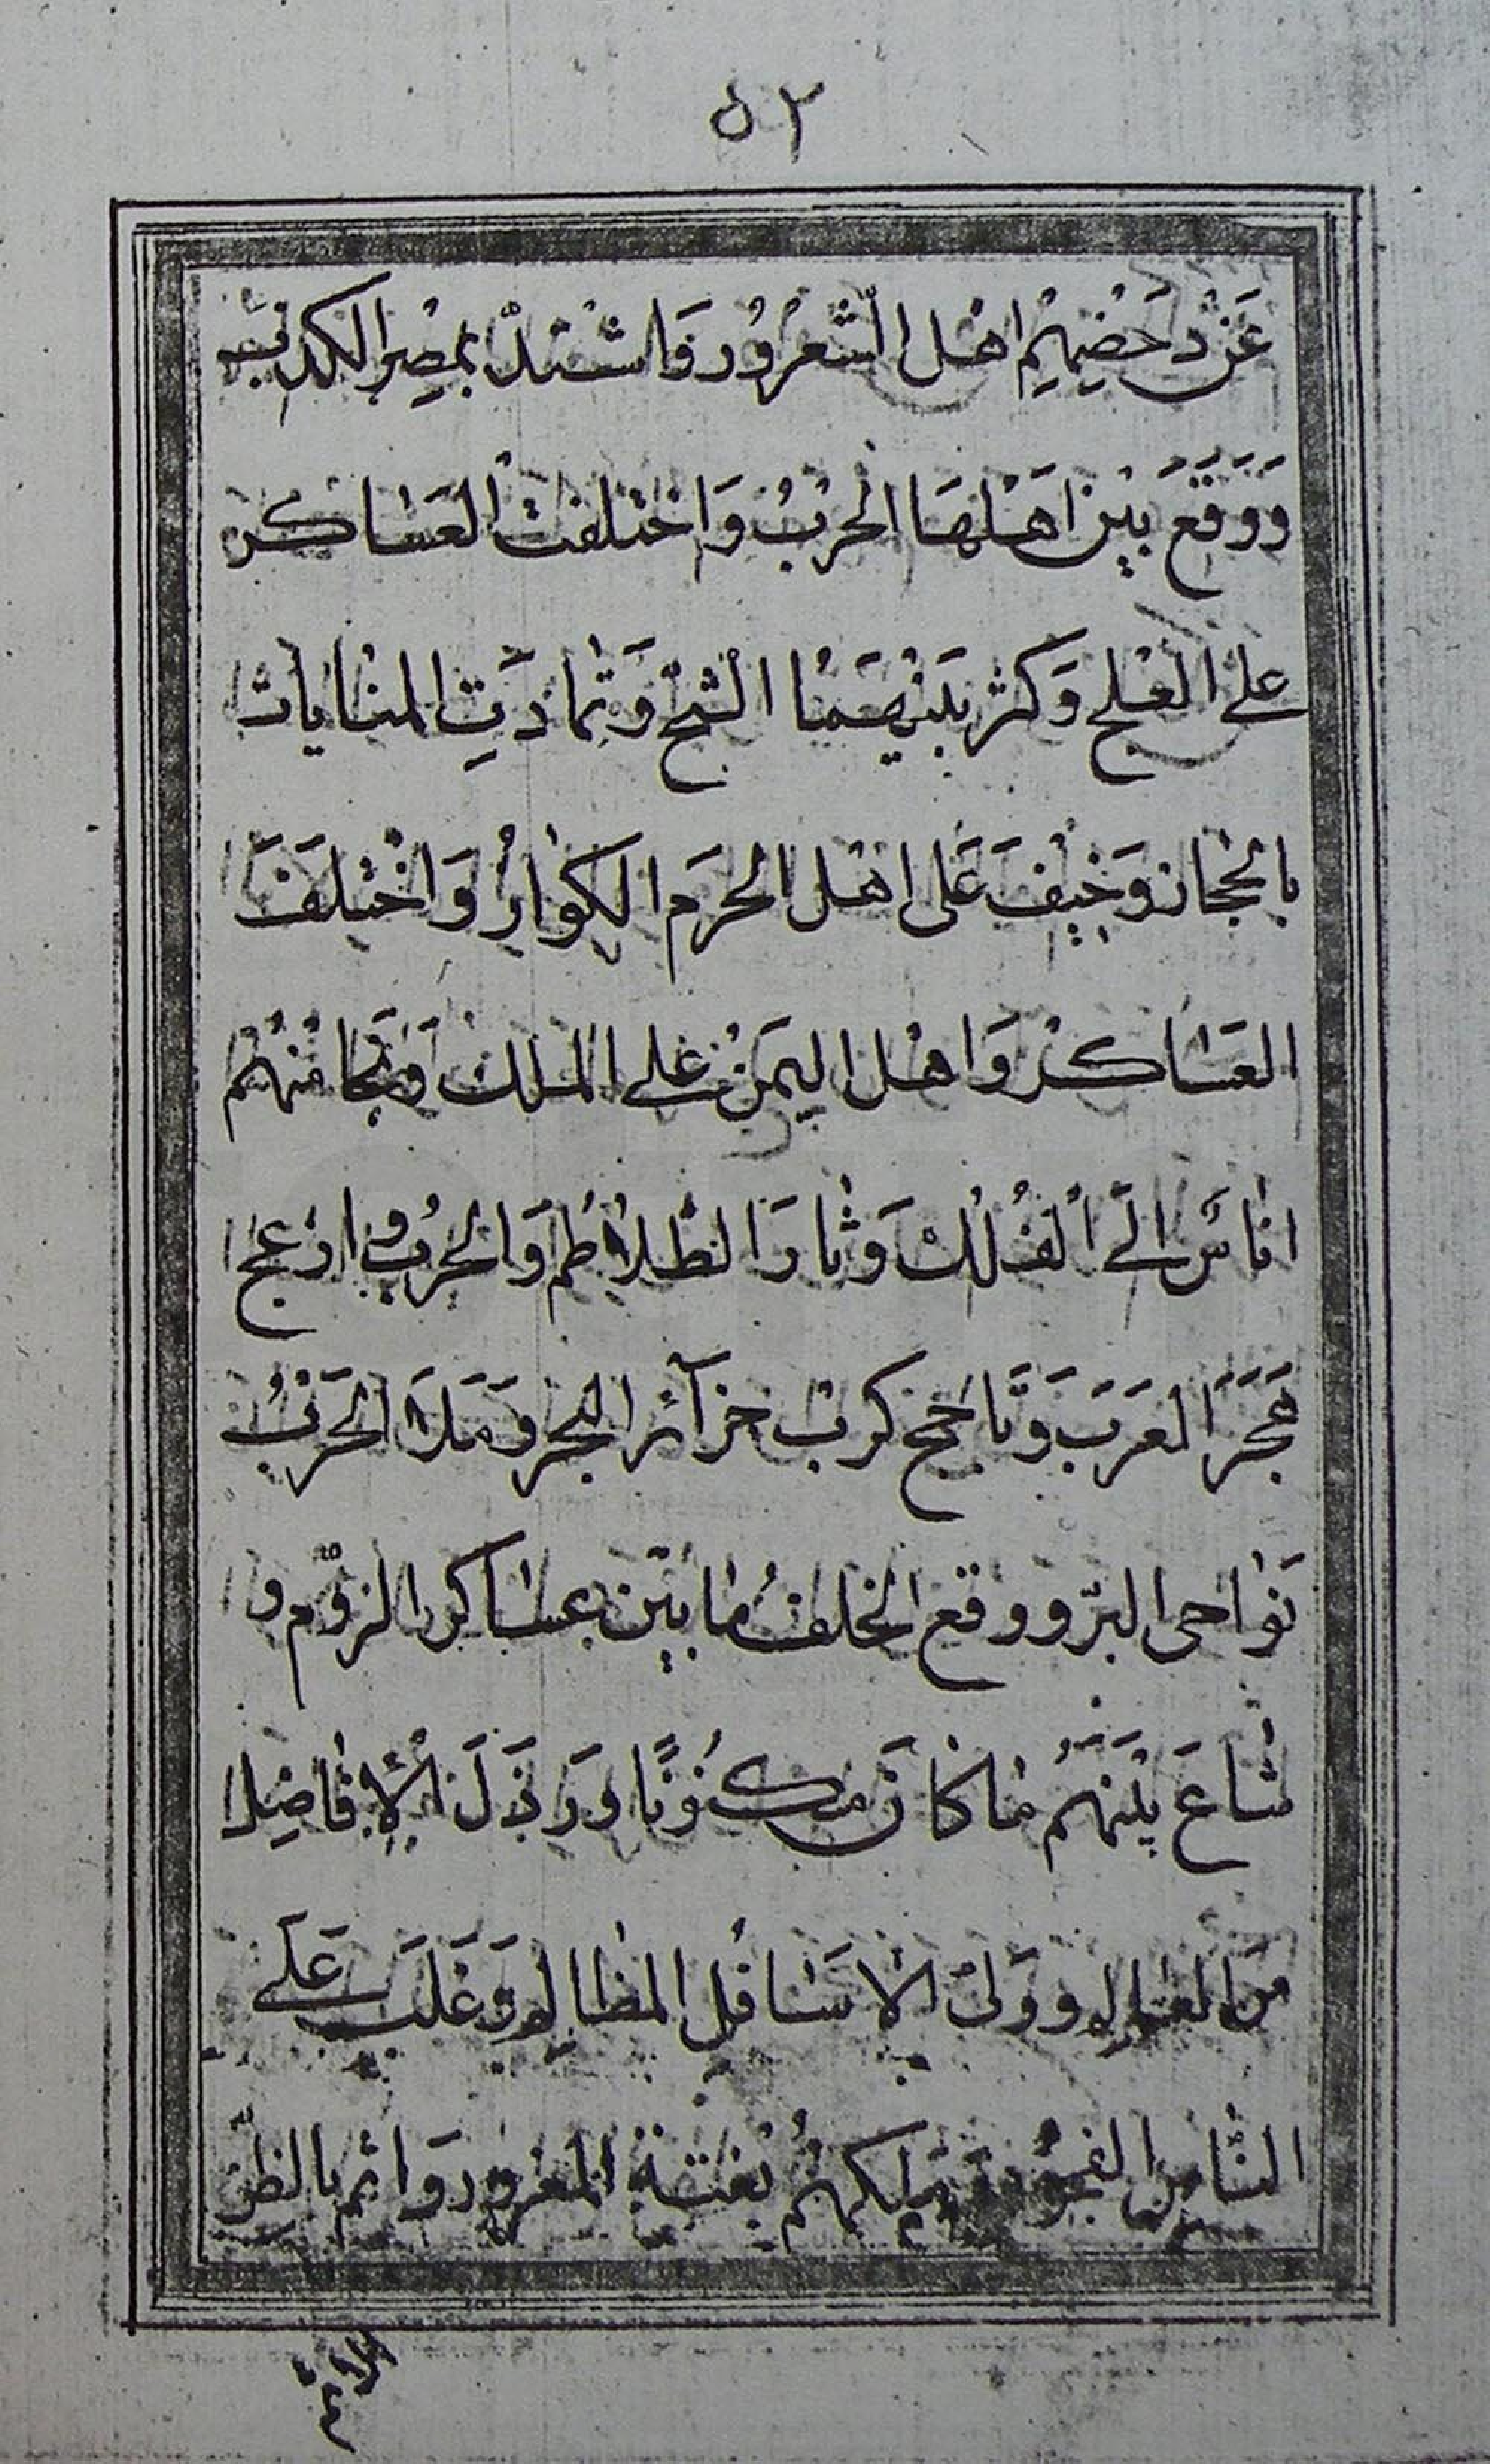 ٥٢
عَنْ دَحَضِيهِمْ اهْل الشّعرُوُر وَاشْتدّ بمِصِر الكرب
وَوَقَعَ بيْن اَهْلهَا الحْربُ وَاختلفت العسَاكر
على العْلج وَكثر بَيْنهمَا الشّحّ وَتمادَتِ المنايات
بالحجاز وَخيْفَ عَلى اهْل الحرَم الكوارُ وَاخْتلَفَ
العسَاكرْ وَاهْل اليمَنْ على الملك وَنجَا منْهُم
اناسَ الَى الفُلك وَثارَ التلاطم وَالحرُوب ازعج
هَجَرَ العَرَب وَتاجج كرب جزآئر البحر وَمَلاَ الحَرْبُ
نَواحى البرّ ووقع الخلفُ مابيْن عسَاكر الرّوْم و
شاعَ بيْنهَمُ ماكانَ مكنُوْنًا وَرَذلَ الافاضِل
من العَالم ووَلىَ الاسَافل المظالم وَغلَبَ عَلى
النّاس الفجُور يَملكهُمُ بفتنة المغرور وَاثم بالظن